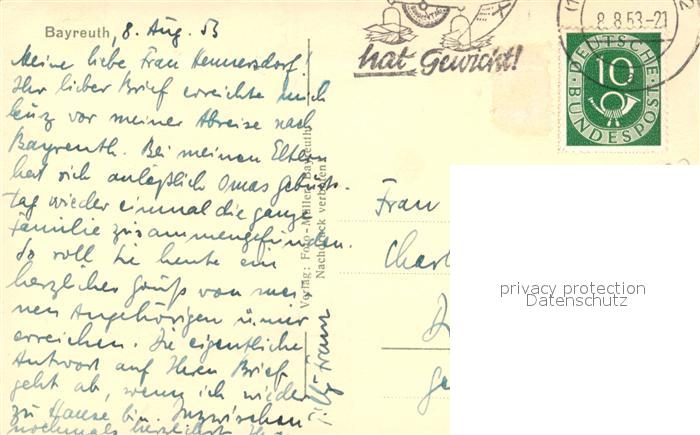 Bayreuth, 8. Aug. 53
Meine liebe Frau Hennersdorf!
Ihr lieber Brief erreichte mich
kurz vor meiner Abreise nach
Bayreuth. Bei meinen Eltern
hat sich anläßlich Omas Geburts-
tag wieder einmal die ganze
Familie zusammengefunden.
So soll Sie heute ein
herzlicher Gruß von mei-
nen Angehörigen u. mir
erreichen. Die eigentliche
Antwort auf Ihren Brief
geht ab, wenn ich wieder
zu Hause bin. Inzwischen
nochmals herzlichst
Verlag: Foto-Müller, Bayreuth
Nachdruck verboten
hat Gewicht!
8.8.53-21
DEUTSCHE
10
BUNDESPOST
Frau
Charl
privacy protection
Datenschutz